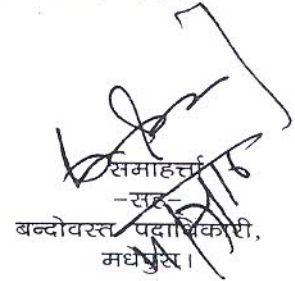 समाहर्त्ता
-सह-
बन्दोवस्त पदाधिकारी,
मधेपुरा।